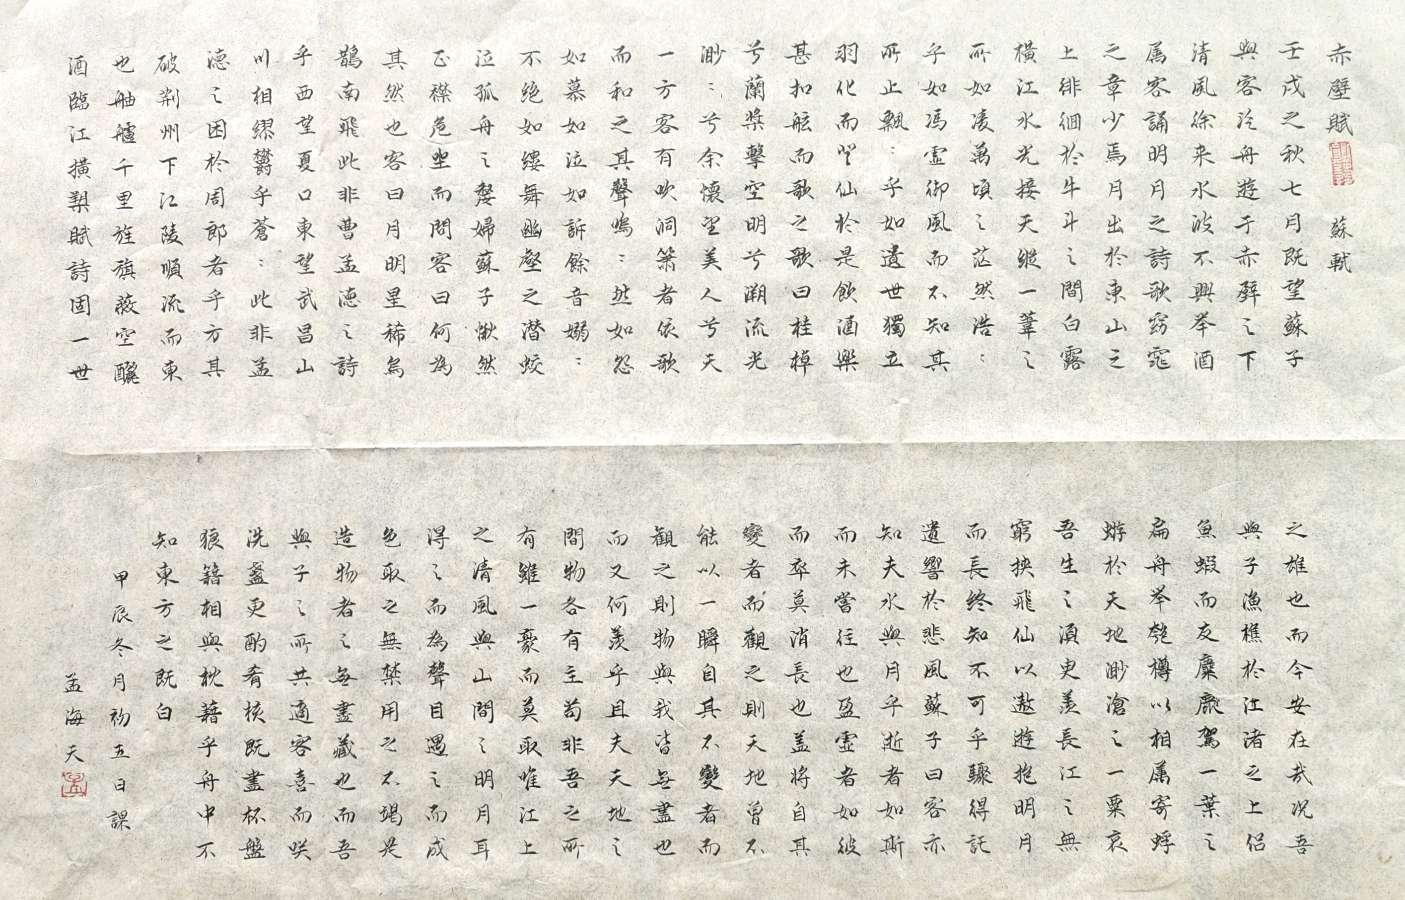 赤壁賦 蘇軾
壬戌之秋七月既望蘇子
與客泛舟遊于赤壁之下
清風徐来水波不興举酒
属客誦明月之詩歌窈窕
之章少焉月出於東山之
上徘徊於牛斗之間白露
橫江水光接天縱一葦之
所如凌萬頃之茫然浩〻
乎如馮虛御風而不知其
所止飄〻乎如遺世獨立
羽化而登仙於是飲酒樂
甚扣舷而歌之歌曰桂棹
兮蘭槳擊空明兮溯流光
渺〻兮余懷望美人兮天
一方客有吹洞簫者依歌
而和之其聲嗚〻然如怨
如慕如泣如訴餘音嫋〻
不绝如缕舞幽壑之潜蛟
泣孤舟之嫠婦蘇子愀然
正襟危坐而問客曰何為
其然也客曰月明星稀烏
鵲南飛此非曹孟德之詩
乎西望夏口東望武昌山
川相繆鬱乎蒼〻此非孟
德之困於周郎者乎方其
破荆州下江陵順流而東
也舳艫千里旌旗蔽空釃
酒臨江橫槊賦詩固一世
之雄也而今安在哉况吾
與子漁樵於江渚之上侣
魚蝦而友麋鹿駕一葉之
扁舟举匏樽以相属寄蜉
蝣於天地渺滄之一粟哀
吾生之須臾羨長江之無
窮挾飛仙以遨遊抱明月
而長終知不可乎驟得託
遺響於悲風蘇子曰客亦
知夫水與月乎逝者如斯
而未嘗往也盈虛者如彼
而卒莫消長也盖將自其
變者而觀之則天地曾不
能以一瞬自其不變者而
觀之則物與我皆無盡也
而又何羨乎且夫天地之
間物各有主苟非吾之所
有雖一毫而莫取惟江上
之清風與山間之明月耳
得之而為聲目遇之而成
色取之無禁用之不竭是
造物者之無盡藏也而吾
與子之所共適客喜而笑
洗盞更酌肴核既盡杯盤
狼籍相與枕藉乎舟中不
知東方之既白
甲辰冬月初五日課
孟海天